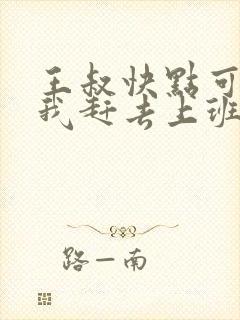 王叔快點可
我赶去上班
路一南